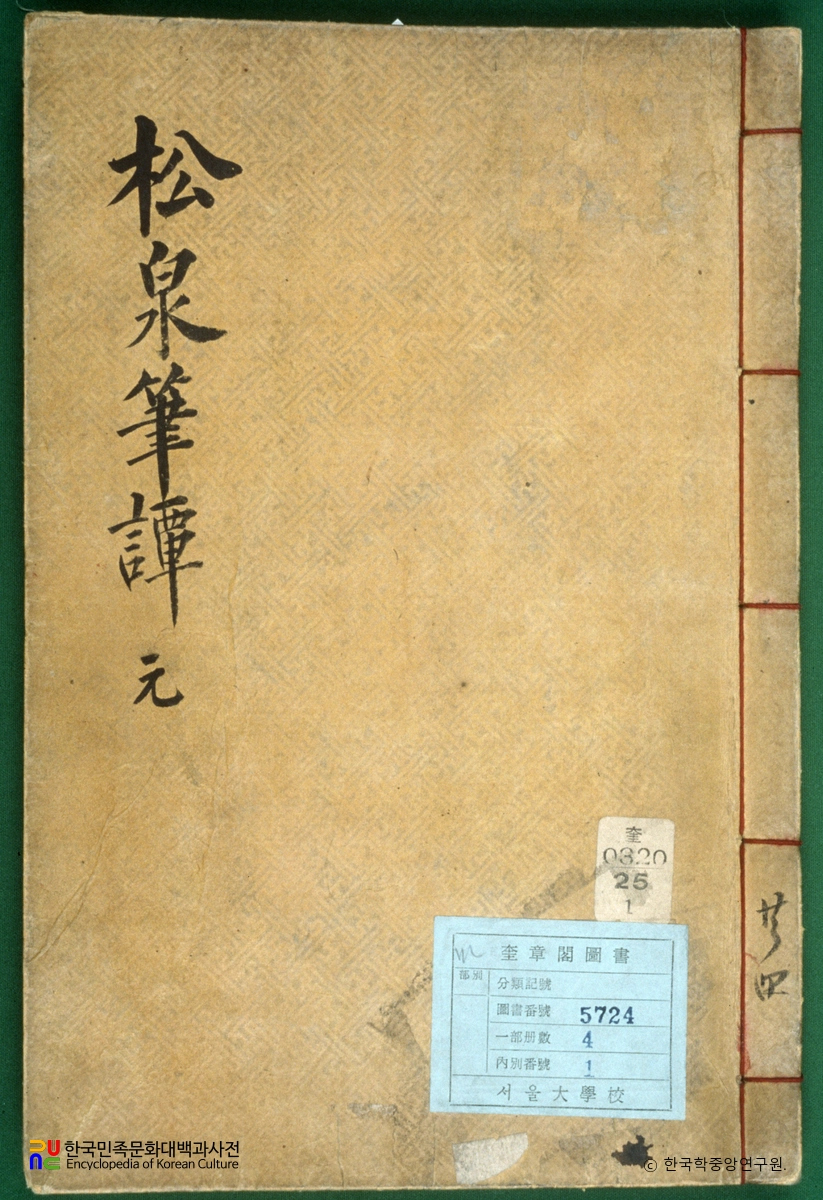 松泉筆譚 元
奎
0320
25
1
奎章閣圖書
部別
分類記號
圖書番號 5724
一部册數 4
內別番號 1
서울大學校
共四
한국민족문화대백과사전
Encyclopedia of Korean Culture
© 한국학중앙연구원.